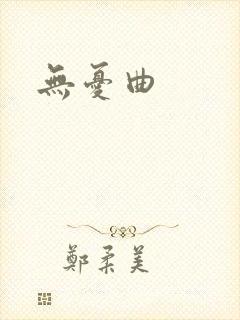 無憂曲
鄭柔美